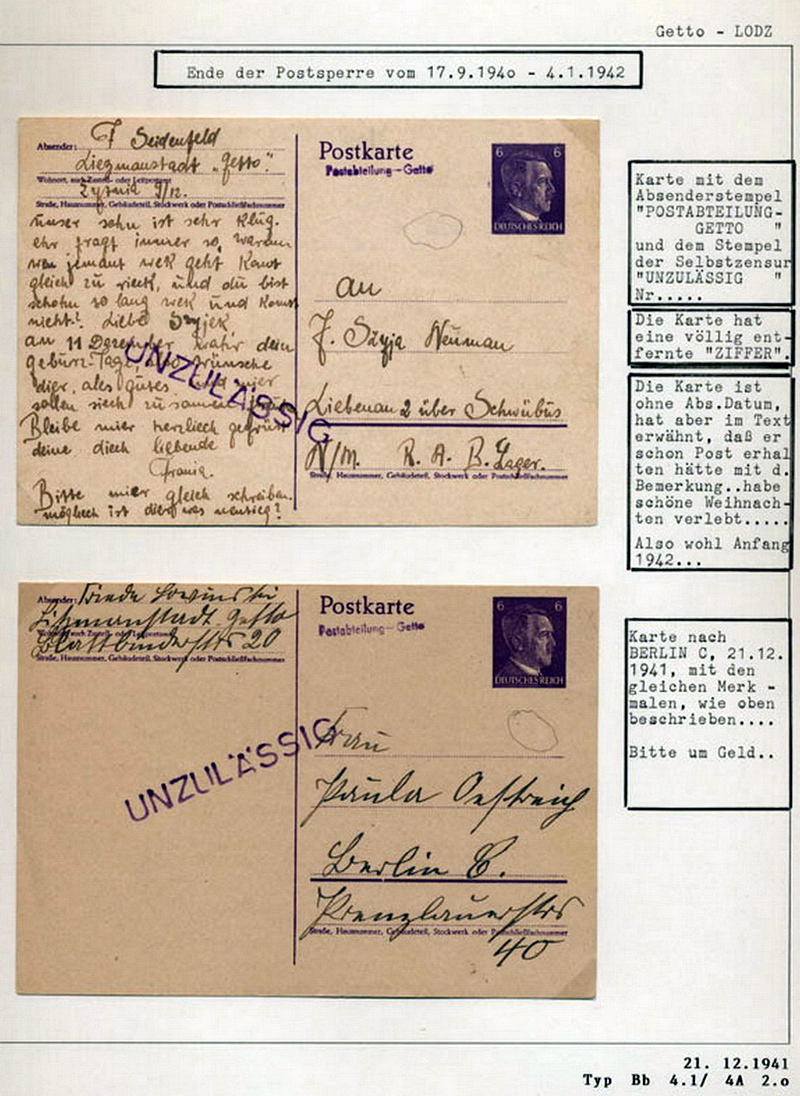 Getto - LODZ
Ende der Postsperre vom 17.9.194o - 4.1.1942
Absender: F Seidenfeld
Liezmanstadt „Getto."
Wohnort, auch Zustell- oder Leitpostamt
Zytnia 9/12.
Straße, Hausnummer, Gebäudeteil, Stockwerk oder Postschließfachnummer
unser sohn ist sehr klug.
ehr fragt immer so, warum
wen jemant wek geht komt
gleich zu rieck, und du bist
schohn so lang wek und komst
nicht! Liebe Szyjek,
an 11 Dezember wahr dein
geburz-Tage, also wünsche
dier, ales gutes und mier
sollen siech zusamen
Bleibe mier herzliech gegrüst
deine diech liebende
Frania.
Bitte mier gleich schreiben.
möglich ist dier was neutieg?
UNZULÄSSIG
Postkarte
Postabteilung-Getto
6 6
DEUTSCHES REICH
An
J. Szyja Neuman
Liebenau 2 über Schwübus
N/M. R. A. B. Lager.
Straße, Hausnummer, Gebäudeteil, Stockwerk oder Postschließfachnummer
Karte mit dem
Absenderstempel
"POSTABTEILUNG-
GETTO "
und dem Stempel
der Selbstzensur
"UNZULÄSSIG "
Nr.....
Die Karte hat
eine völlig ent-
fernte "ZIFFER".
Die Karte ist
ohne Abs.Datum,
hat aber im Text
erwähnt, daß er
schon Post erhal
ten hätte mit d.
Bemerkung..habe
schöne Weihnach-
ten verlebt.....
Also wohl Anfang
1942...
Absender: Frieda Lewinski
Litzmanstadt-Getto
Wohnort, auch Zustell- oder Leitpostamt
Blattbinderstrs 20
Straße, Hausnummer, Gebäudeteil, Stockwerk oder Postschließfachnummer
UNZULÄSSIG
Postkarte
Postabteilung-Getto
6 6
DEUTSCHES REICH
Frau
Paula Oestreich
Berlin C.
Prenzlauerstrs
Straße, Hausnummer, Gebäudeteil, Stockwerk oder Postschließfachnummer
40
Karte nach
BERLIN C, 21.12.
1941, mit den
gleichen Merk -
malen, wie oben
beschrieben....
Bitte um Geld..
21. 12.1941
Typ Bb 4.1/ 4A 2.o